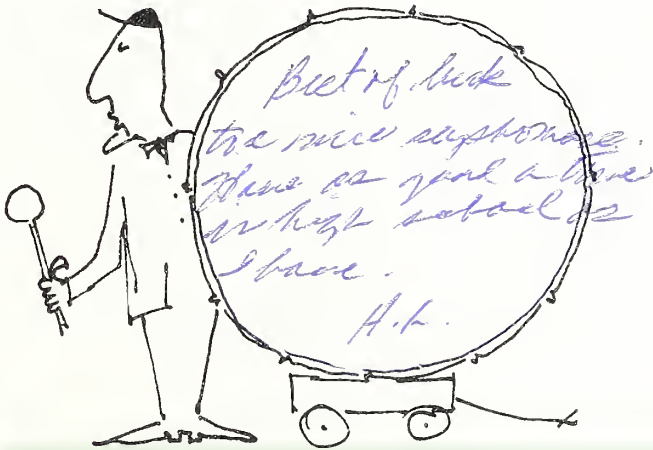 Best of luck
to a nice sophomore.
Have as good a time
in high school as
I have.
H.L.